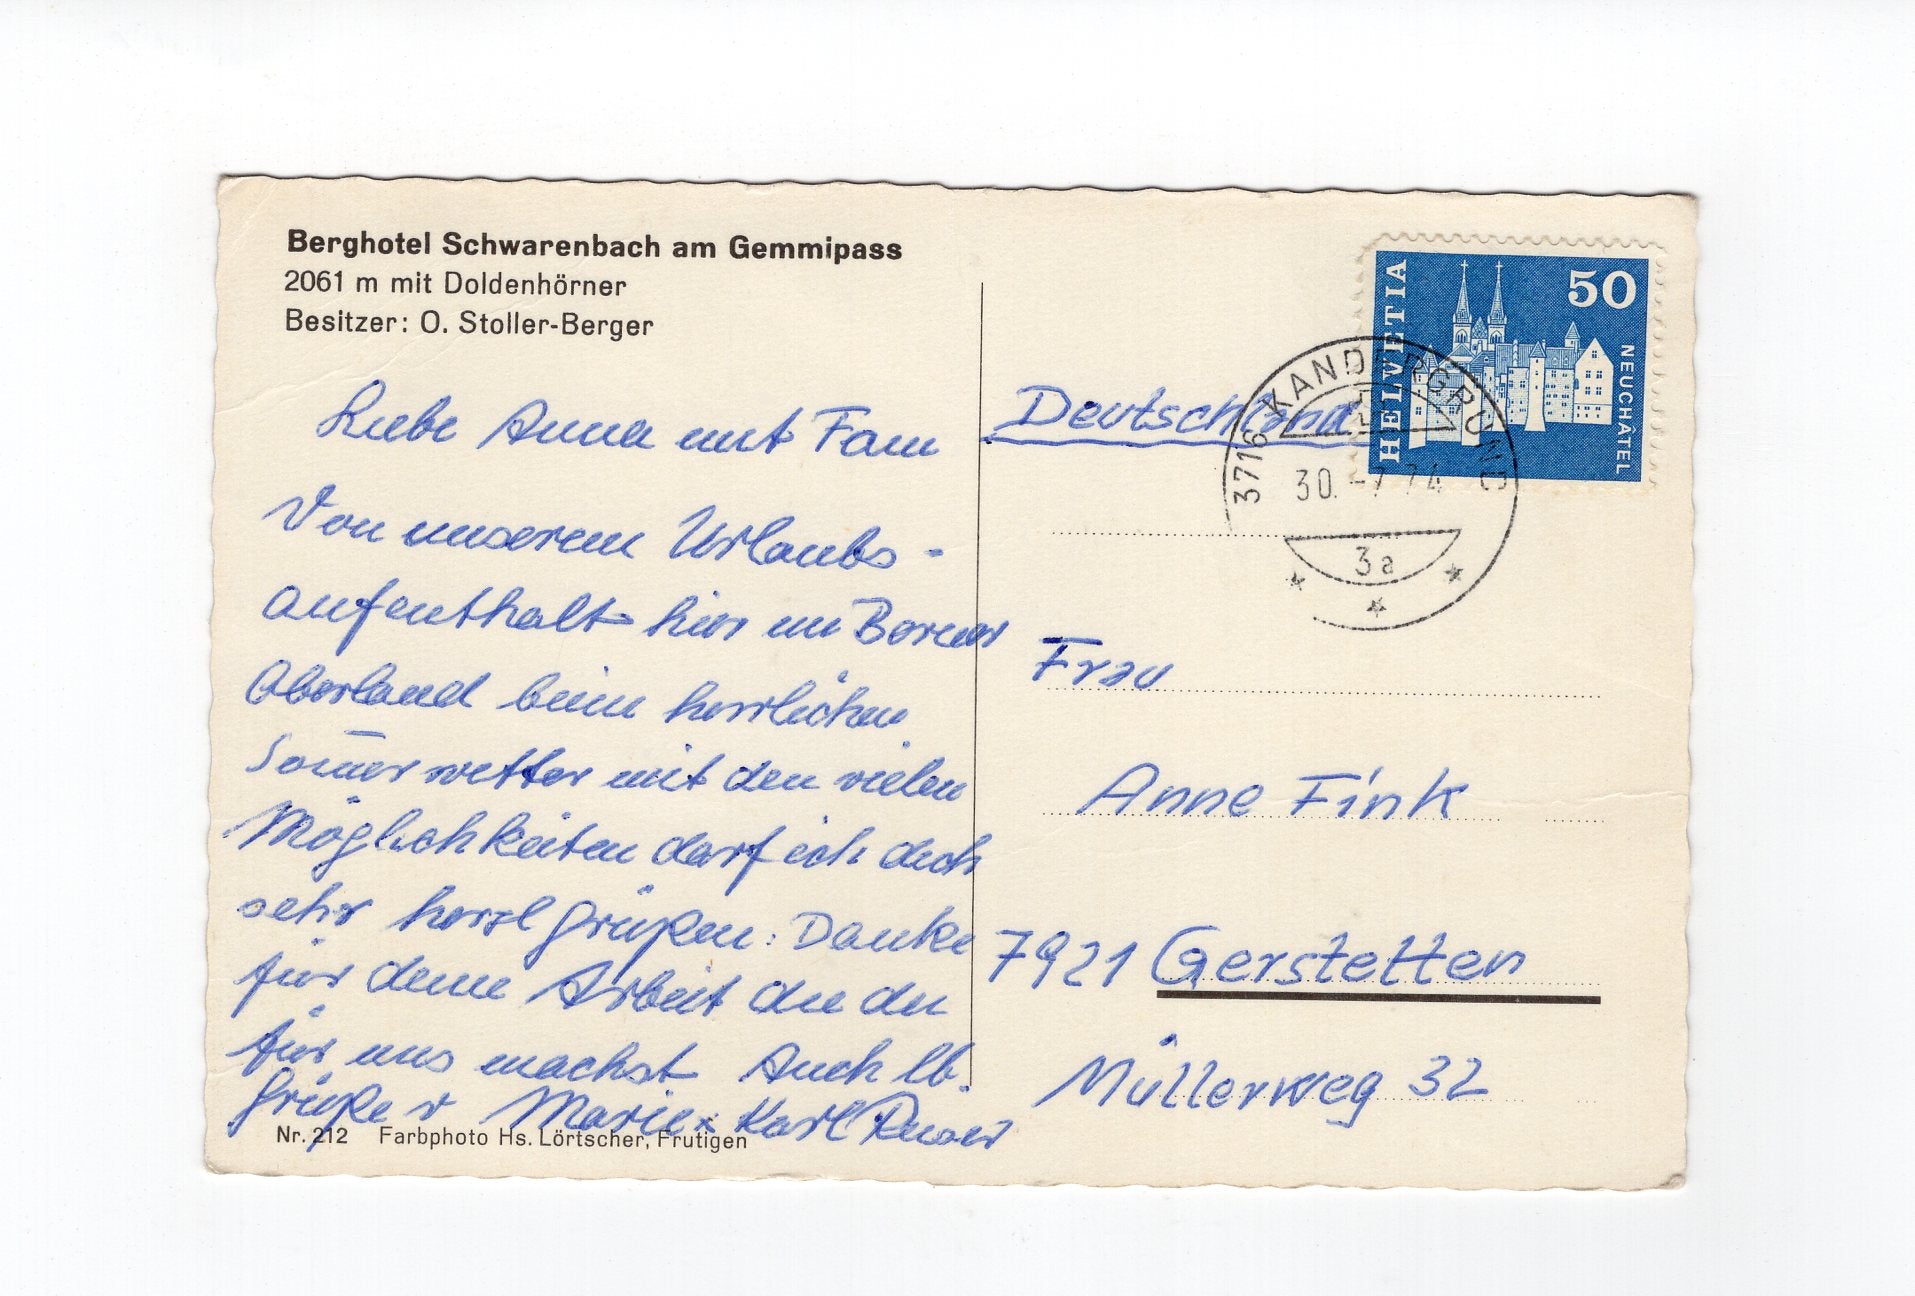 Berghotel Schwarenbach am Gemmipass
2061 m mit Doldenhörner
Besitzer: O. Stoller-Berger
Liebe Anna mit Fam
Von unserem Urlaubs-
aufenthalt hier im Berner
Oberland beim herrlichen
Som̅erwetter mit den vielen
Möglichkeiten darf ich dich
sehr herzl grüßen. Danke
für deine Arbeit die du
für uns machst Auch lb.
Grüße v Marie Karl
Nr. 212 Farbphoto Hs. Lörtscher, Frutigen
HELVETIA
50
NEUCHÂTEL
3716 KANDERGRUND
30.-7.74
3a
Deutschland
Frau
Anne Fink
7921 Gerstetten
Müllerweg 32